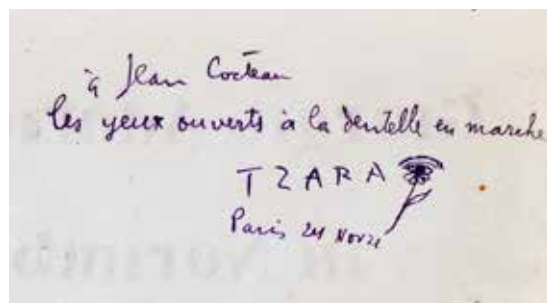 à Jean Cocteau
les yeux ouverts à la dentelle en marche
TZARA
Paris 24 Nov